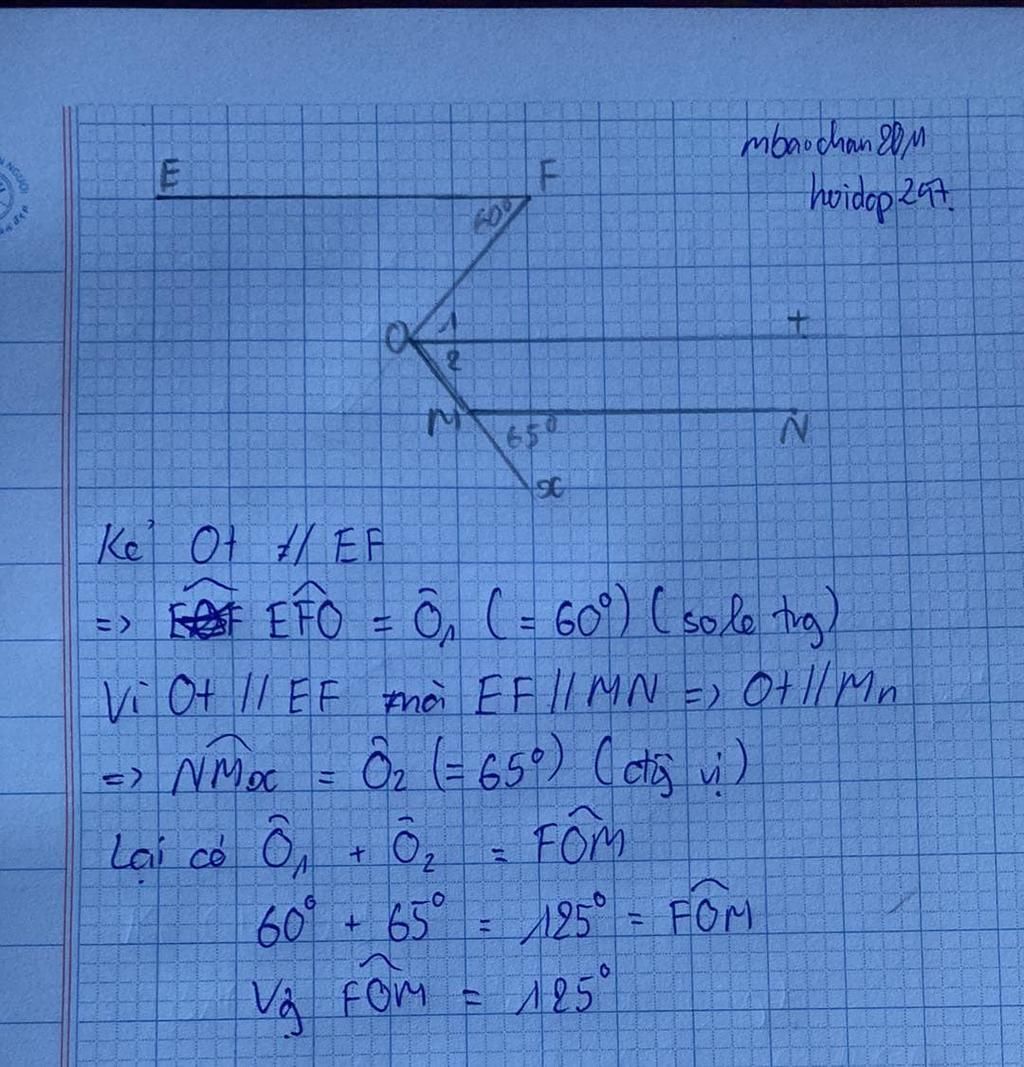 mbaochan2011
hoidap247.
E F
60°
O 1 t
2
M 65° N
x
Kẻ Ot // EF
=> EF̂O = Ô₁ (= 60°) (sole trg)
Vì Ot // EF mà EF // MN => Ot // Mn
=> NM̂x = Ô₂ (= 65°) (đg̃ vị)
Lại có Ô₁ + Ô₂ = FÔM
60° + 65° = 125° = FÔM
Vậy FÔM = 125°